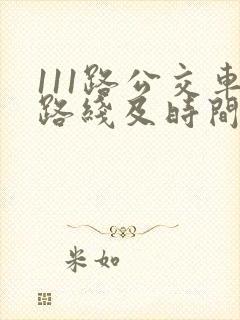 111路公交車
路綫及時間
米如